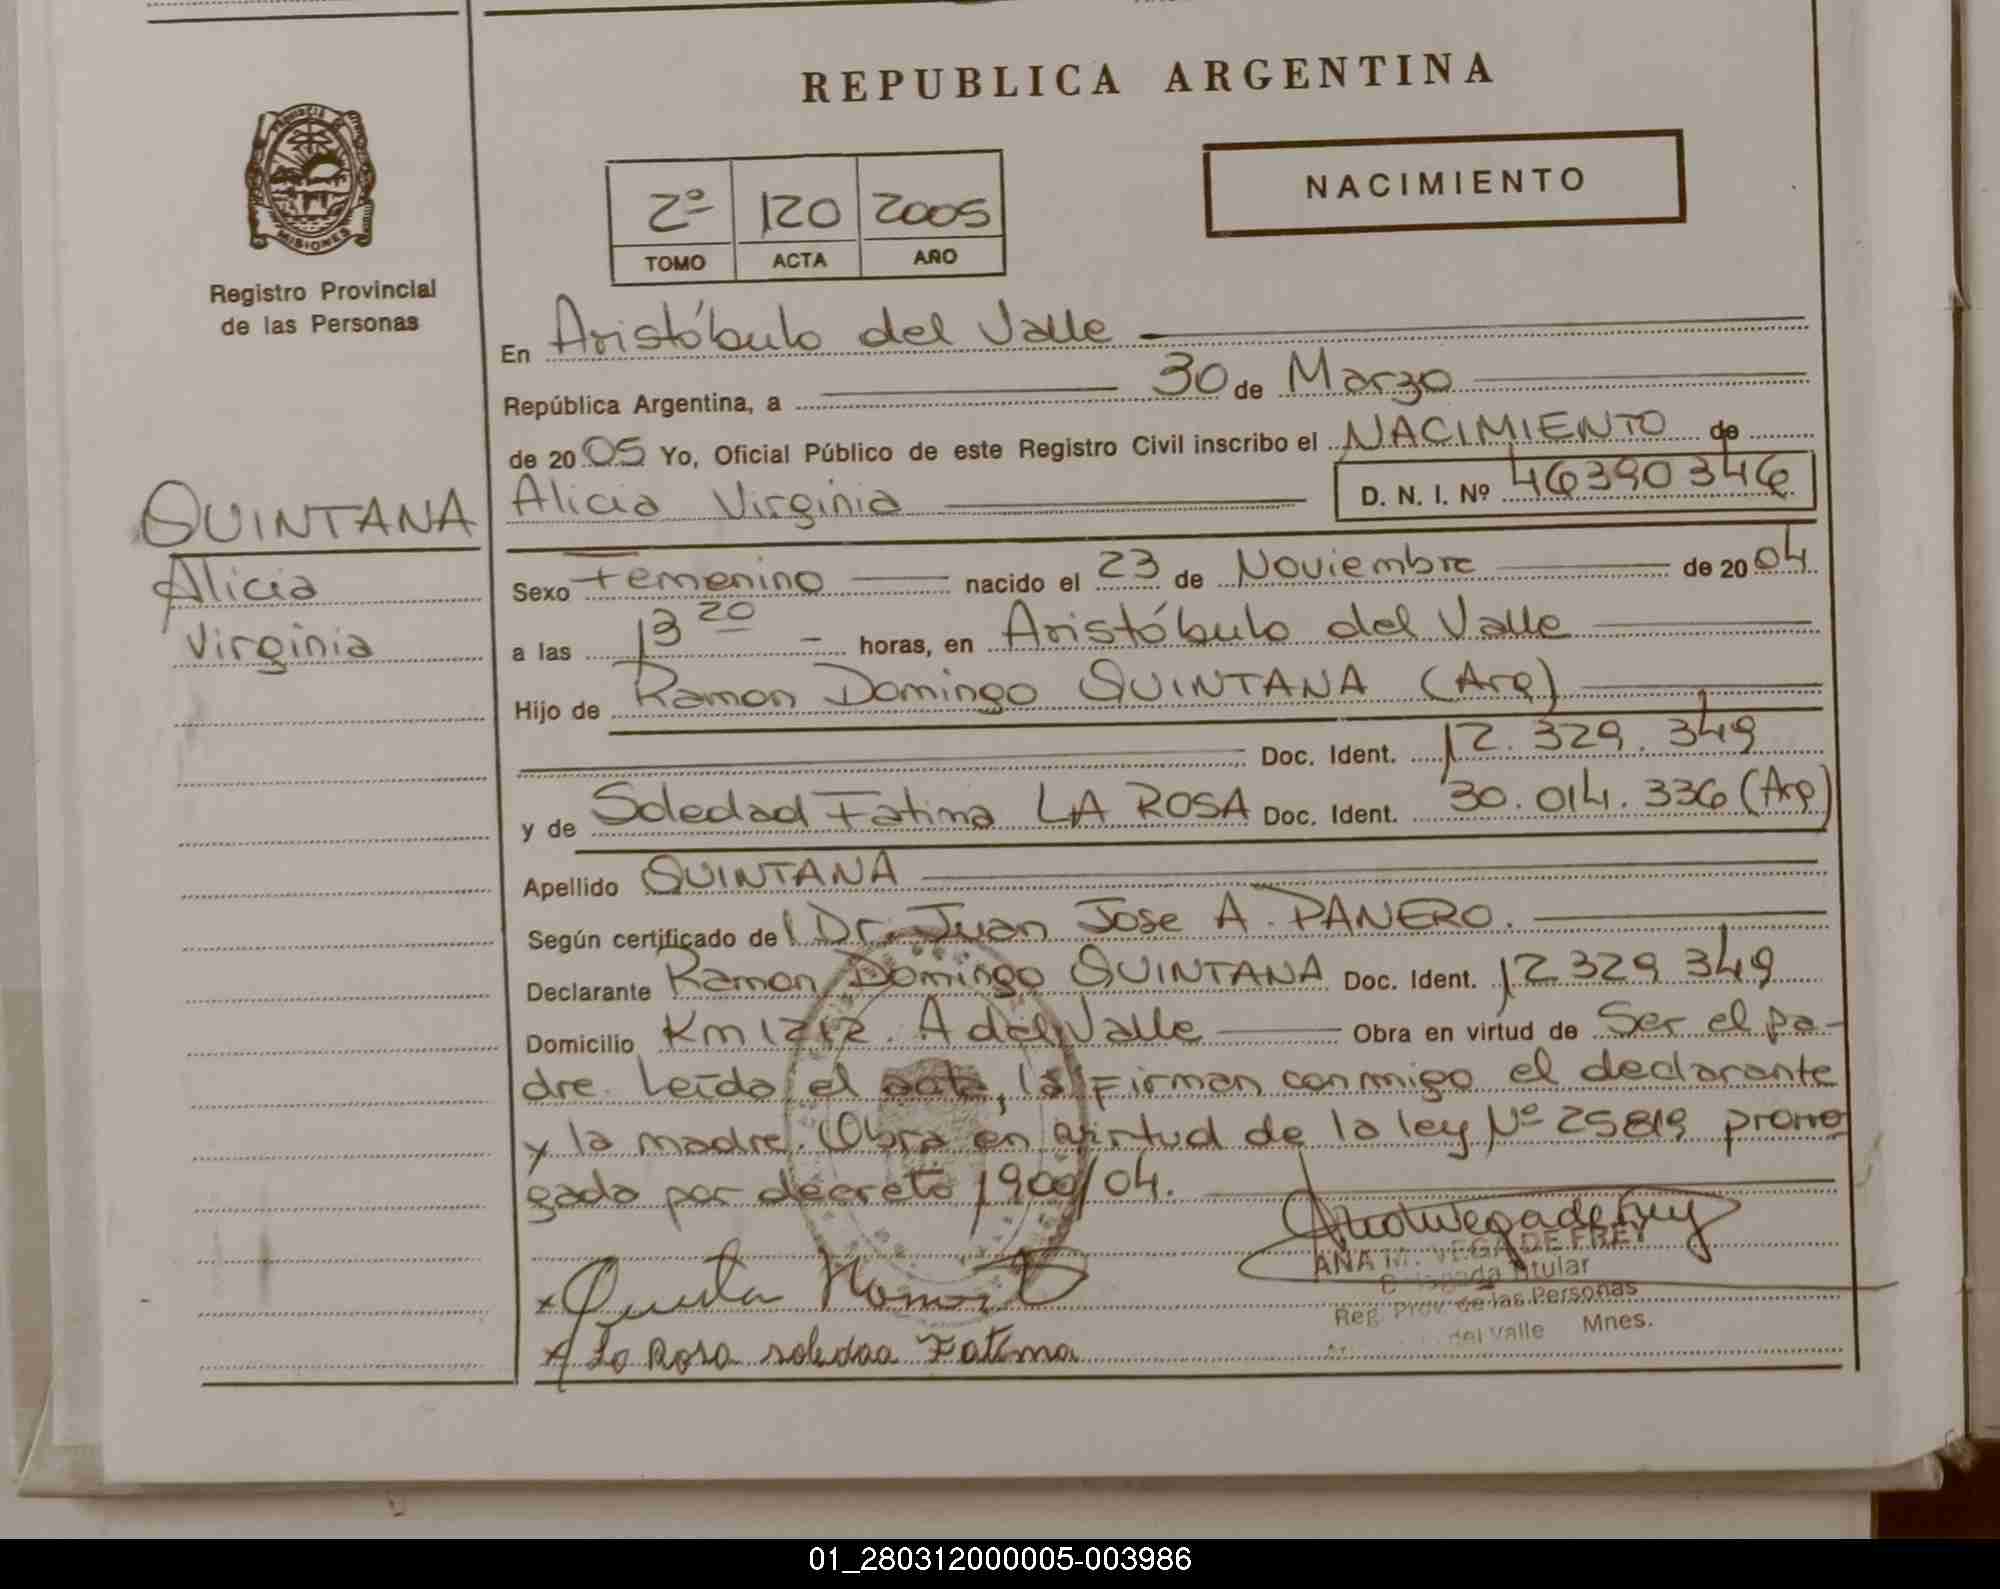 REPUBLICA ARGENTINA
PROVINCIA DE
MISIONES
Registro Provincial
de las Personas
NACIMIENTO
2º 120 2005
TOMO ACTA AÑO
En Aristóbulo del Valle
República Argentina, a 30 de Marzo
de 2005 Yo, Oficial Público de este Registro Civil inscribo el NACIMIENTO de
Alicia Virginia D. N. I. Nº 46390346
QUINTANA
Alicia
Virginia
Sexo Femenino nacido el 23 de Noviembre de 2004
a las 13 20 horas, en Aristóbulo del Valle
Hijo de Ramon Domingo QUINTANA (Arg)
Doc. Ident. 12.329.349
y de Soledad Fatima LA ROSA Doc. Ident. 30.014.336 (Arg)
Apellido QUINTANA
Según certificado del Dr. Juan Jose A. PANERO.
Declarante Ramon Domingo QUINTANA Doc. Ident. 12329349
Domicilio Km 1212. A del Valle Obra en virtud de Ser el pa-
dre. Leída el acta, la firman conmigo el declarante
y la madre. Obra en virtud de la ley Nº 25819 prorro
gada por decreto 1900/04.
ANA M. VEGA DE FREY
Delegada Titular
Reg. Prov. de las Personas
del Valle Mnes.
x La Rosa soledaa Fatima
01_280312000005-003986